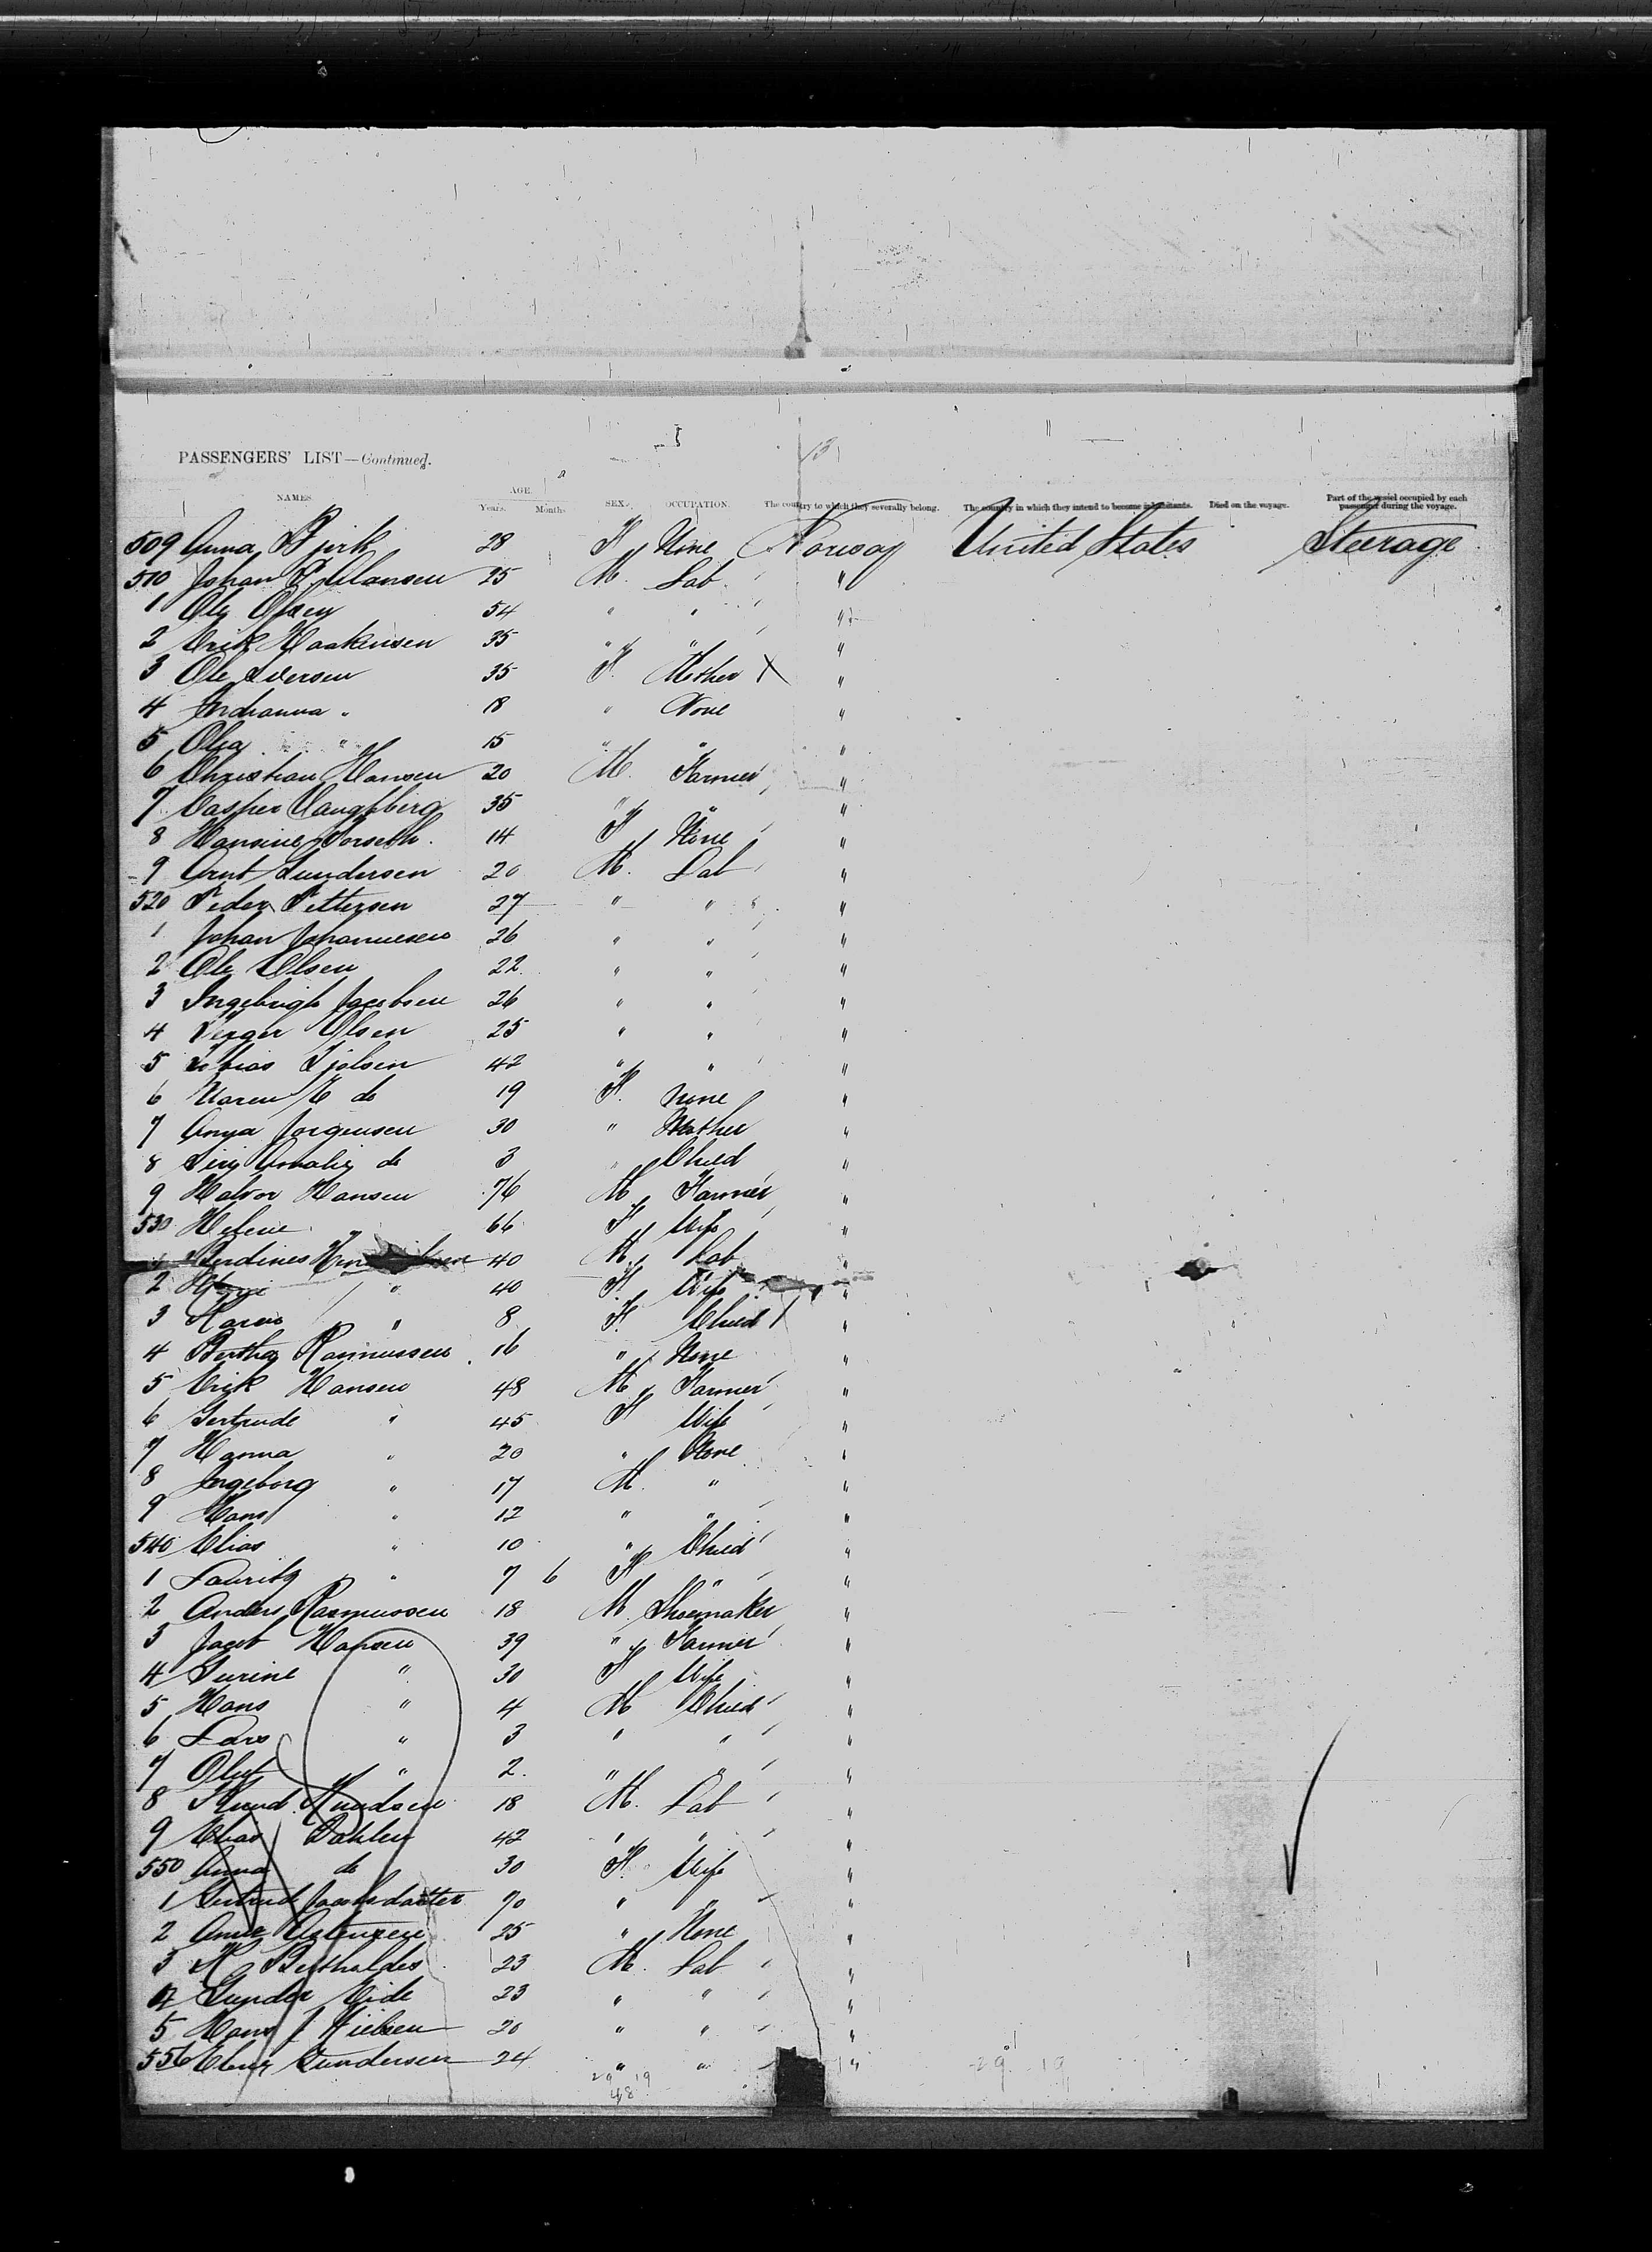 13
PASSENGERS' LIST—Continued.
NAMES. AGE. Years. Months. SEX. OCCUPATION. The country to which they severally belong. The country in which they intend to become inhabitants. Died on the voyage. Part of the vessel occupied by each passenger during the voyage.
509 Anna Bjork 28 F None Norway United States Steerage
510 Johan 25 M. Lab. "
1 Ole Olsen 54 " " "
2 Erik Haakensen 35 " " "
3 Ole Iversen 35 F. Mother X "
4 Indianna " 18 " None "
5 Olea " 15 " " "
6 Christian Hansen 20 M. Farmer "
7 Casper 35 " " "
8 Hansine Forseth. 14 F None "
9 Arnt Gundersen 20 M. Lab "
520 Peder Pettersen 27 " " "
1 Johan Johannesen 26 " " "
2 Ole Olsen 22 " " "
3 Ingebrigt Jacobsen 26 " " "
4 Olsen 25 " " "
5 Tobias 42 " " "
6 Maren do 19 F. None "
7 Anna Jorgensen 30 " Mother "
8 Amalie do 3 " Child "
9 Halvor Hansen 76 M Farmer "
530 Helene " 66 F Wife "
1 40 M Lab "
2 " 40 F Wife "
3 Karen " 8 F. Child "
4 Bertha Rasmussen 16 " None "
5 Erik Hansen 48 M Farmer "
6 Gertrude " 45 F Wife "
7 Hanna " 20 " None "
8 Ingeborg " 17 M " "
9 Hans " 12 " " "
540 Elias " 10 " Child "
1 Lauritz " 7 6 F " "
2 Anders Rasmussen 18 M. Shoemaker "
3 Jacob Hansen 39 " Farmer "
4 Surine " 30 F Wife "
5 Hans " 4 M Child "
6 Lars " 3 " " "
7 Oluf " 2. " " "
8 Knud Knudsen 18 M. Lab "
9 Elias Dahlen 42 " " "
550 Anna do 30 F. Wife "
1 Gertrud Jacobsdatter 70 " " "
2 Anna 25 " None "
3 23 M. Lab "
4 Gunder Eide 23 " " "
5 Hans J Nielsen 20 " " "
556 Gundersen 24 " " "
29 19
48
29 19